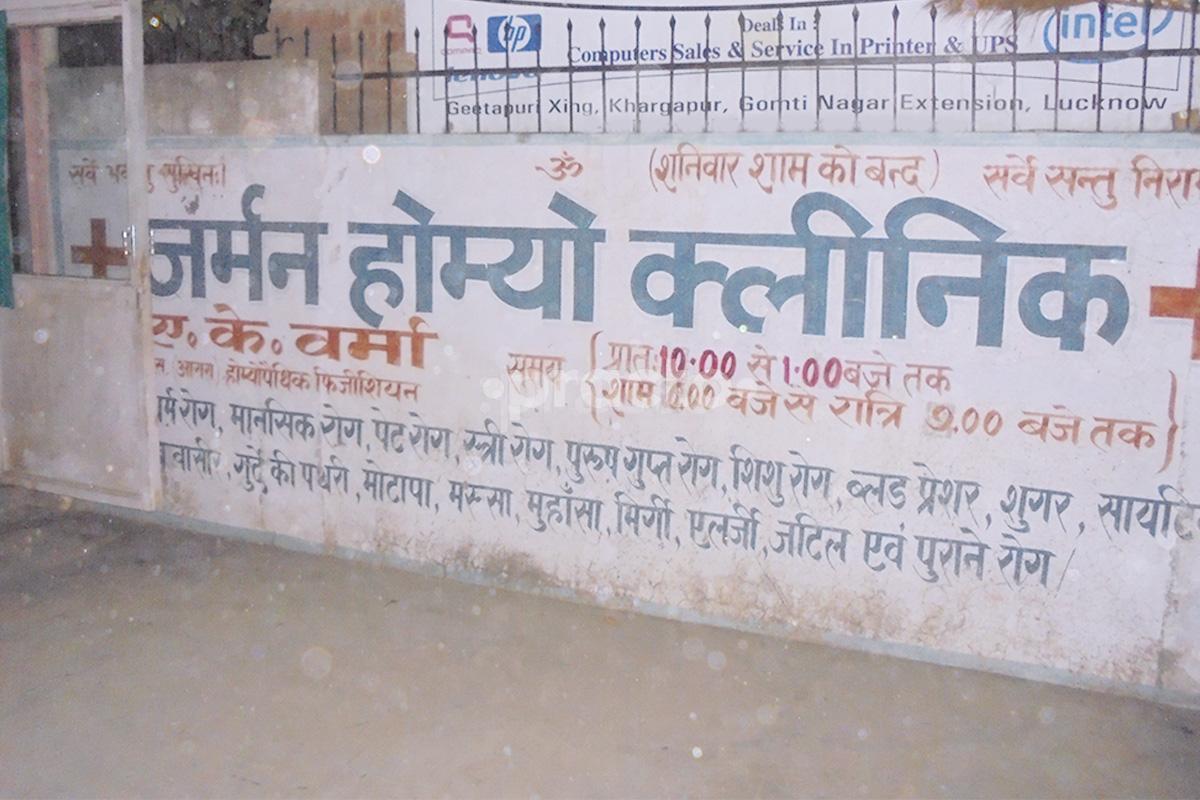 hp
Deals In :
intel
Computers Sales & Service In Printer & UPS
lenovo
Geetapuri Xing, Khargapur, Gomti Nagar Extension, Lucknow
सर्वे
ॐ (शनिवार शाम को बन्द) सर्वे सन्तु निरा
जर्मन होम्यो क्लीनिक
ए. के. वर्मा
होम्योपैथिक फिजीशियन
समय
प्रात: 10.00 से 1.00 बजे तक
शाम 6.00 बजे से रात्रि 9.00 बजे तक
र्म रोग, मानसिक रोग, पेट रोग, स्त्री रोग, पुरूष गुप्त रोग, शिशु रोग, ब्लड प्रेशर, शुगर, सायटि
वासीर, गुर्दे की पथरी, मोटापा, मस्सा, मुहाँसा, मिर्गी, एलर्जी, जटिल एवं पुराने रोग